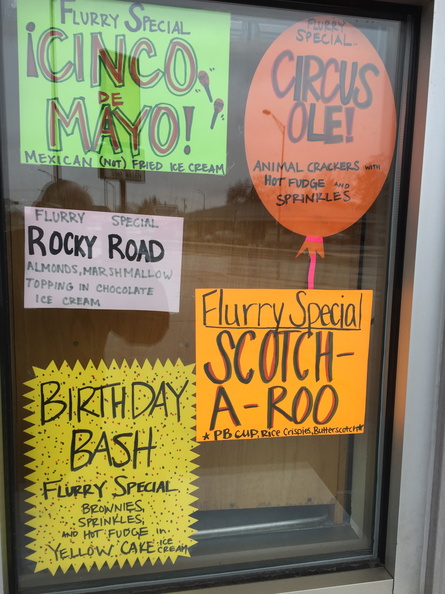 FLURRY SPECIAL
¡CINCO
DE
MAYO!
MEXICAN (NOT) FRIED ICE CREAM
FLURRY
SPECIAL
CIRCUS
OLE!
ANIMAL CRACKERS WITH
HOT FUDGE AND
SPRINKLES
FLURRY SPECIAL
ROCKY ROAD
ALMONDS, MARSHMALLOW
TOPPING IN CHOCOLATE
ICE CREAM
Flurry Special
SCOTCH-
A-ROO
* PB CUP, Rice Crispies, Butterscotch *
BIRTHDAY
BASH
FLURRY SPECIAL
BROWNIES,
SPRINKLES,
AND HOT FUDGE in
YELLOW CAKE ICE CREAM